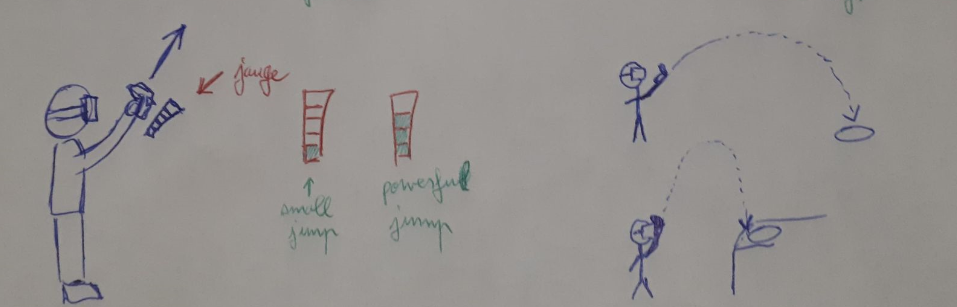 jauge
small
jump
powerful
jump